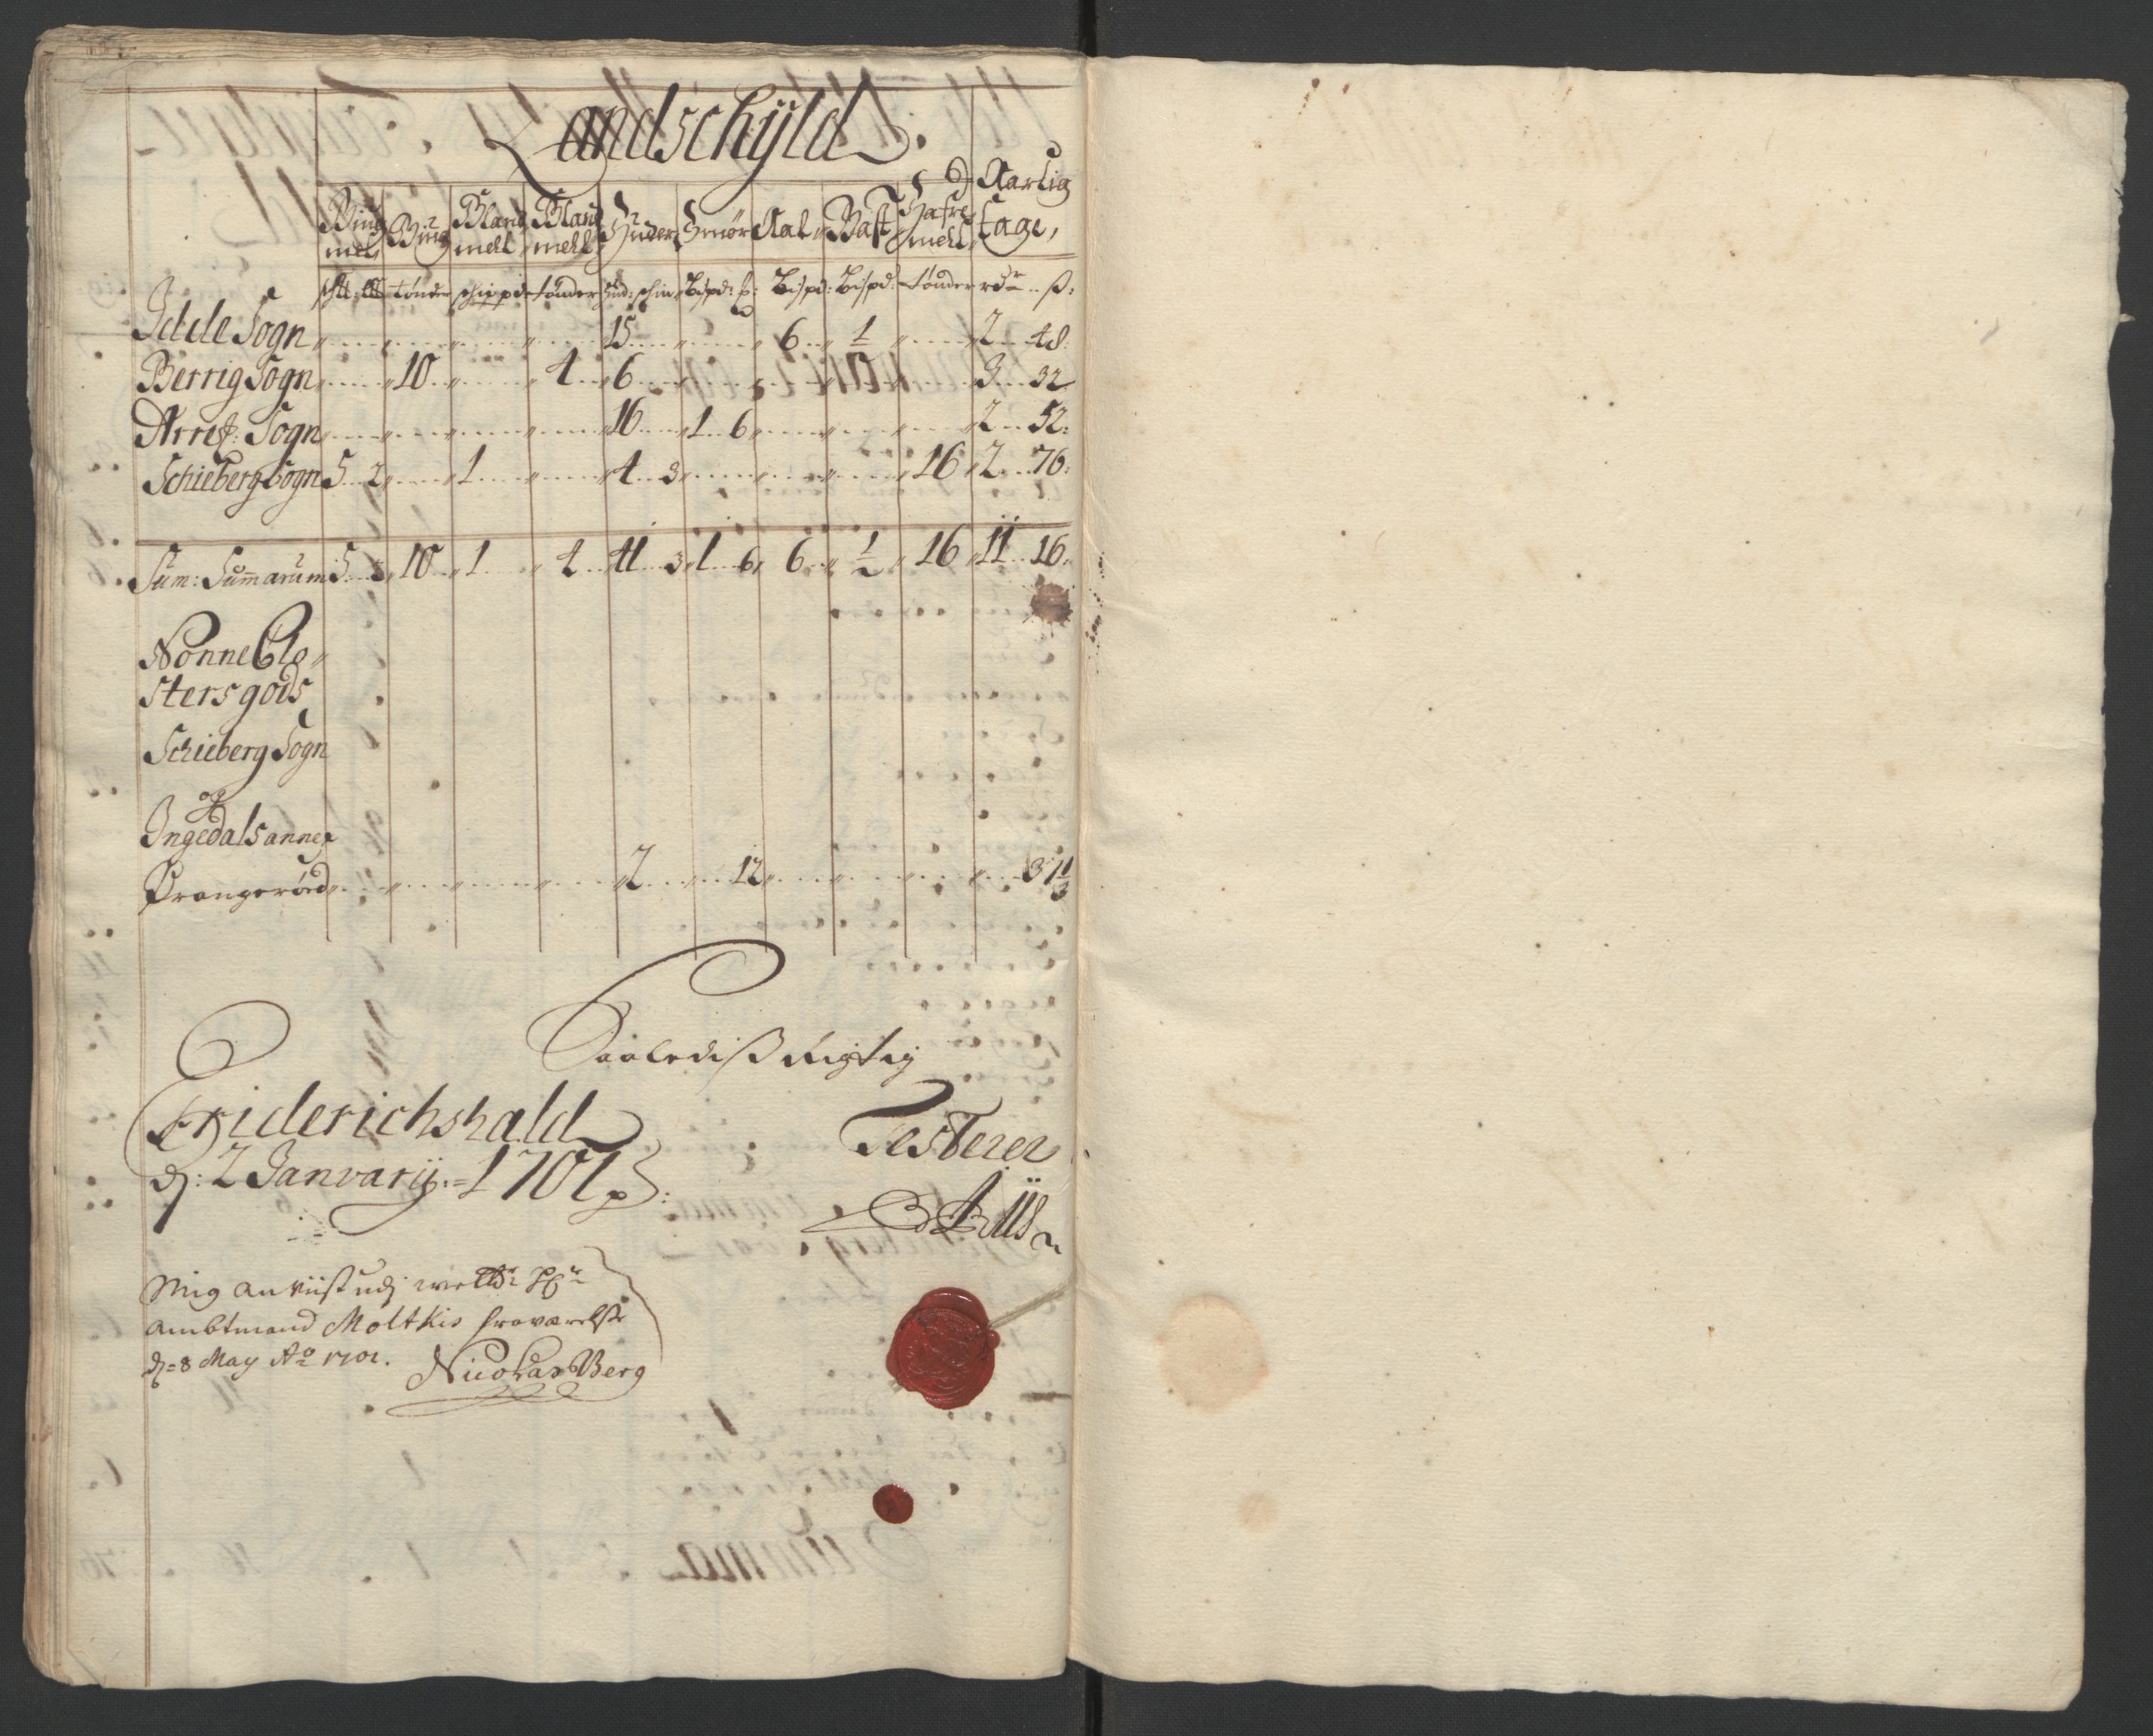 Landschÿld
Biug mel Biug Bland mehl Bland mehl Huder Smør Aal Bast Hafre mehl Aarlig tage,
tønder schippd tønder hud: schin Bispd: Bispd: Bispd: tønder rdr ß:
Idde Sogn 15 6 1 2 48:
Berrig Sogn 10 4 6 3 32
Arref: Sogn 16 1 6 2 52:
Schieberg Sogn 5 2 1 4 3 16 2 76:
Sum: Summarum 5 2 10 1 4 41 3 1 6 6 1/2 16 11 16
Nonne Clo-
sters gods
Schieberg Sogn
og
Ingedals annex
Prangerød 2 12 31 1/3
Saaledis Rigtig
Friderichshald
d: 2 Janvarij 1701
Testerer
Mig anviist udj
ambtmand Moltkis fraværelse
d= 8 May Ao 1701. Nicolas Berg